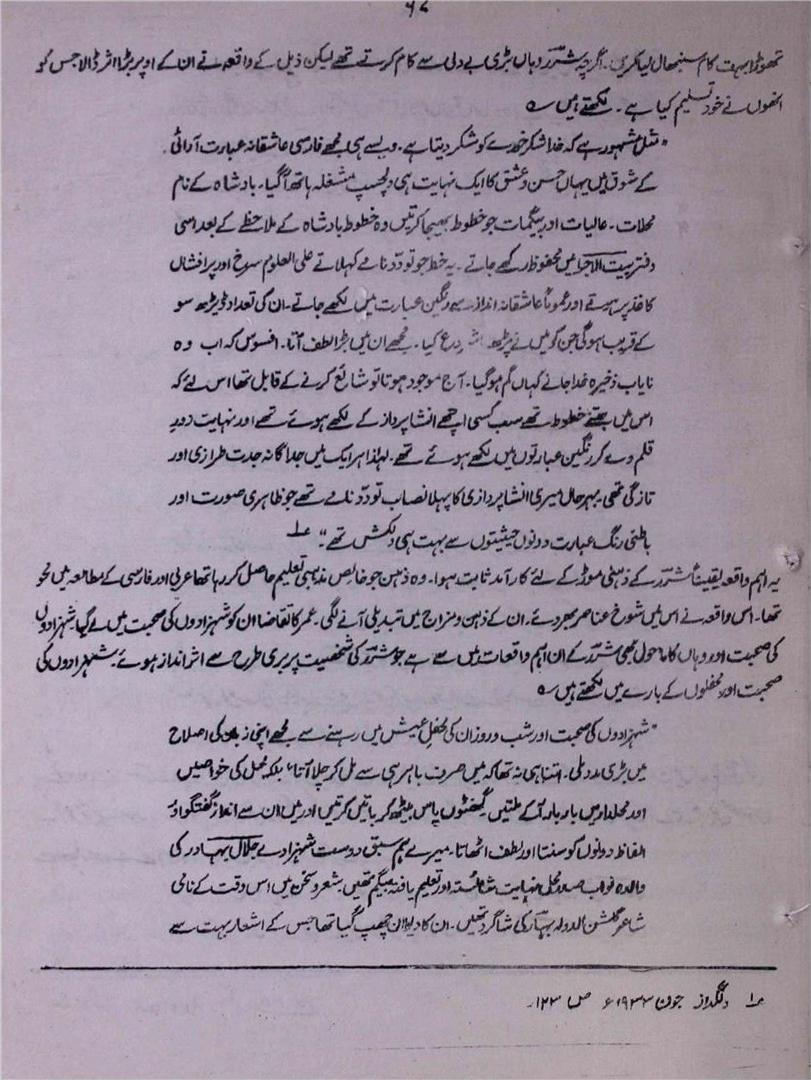 ۶۲
تھوڑا بہت کام سنبھال لیا کریں۔ اگرچہ شررؔ وہاں بڑی بے دلی سے کام کرتے تھے لیکن ذیل کے واقعہ نے ان کے اوپر بڑا اثر ڈالا جس کو
انھوں نے خود تسلیم کیا ہے۔ لکھتے ہیں ؎
"مثل مشہور ہے کہ خدا شکر خورے کو شکر دیتا ہے۔ ویسے ہی مجھے فارسی عاشقانہ عبارت آرائی
کے شوق میں یہاں حسن و عشق کا ایک نہایت ہی دلچسپ مشغلہ ہاتھ آ گیا۔ بادشاہ کے نام
محلات۔ عالیات اور بیگمات جو خطوط بھیجا کرتیں وہ خطوط بادشاہ کے ملاحظے کے بعد اسی
دفتر بیت الاجرا میں محفوظ رکھے جاتے۔ یہ خط جو تودّد نامے کہلاتے علی العلوم سرخ اور پر افشاں
کاغذ پر ہوتے اور عموماً عاشقانہ انداز سے رنگین عبارت میں لکھے جاتے۔ ان کی تعداد ڈیڑھ سو
کے قریب ہوگی جن کو میں نے پڑھنا شروع کیا۔ مجھے ان میں بڑا لطف آتا۔ افسوس کہ اب وہ
نایاب ذخیرہ خدا جانے کہاں گم ہو گیا۔ آج موجود ہوتا تو شائع کرنے کے قابل تھا اس لئے کہ
اس میں جتنے خطوط تھے سب کسی اچھے انشا پرداز کے لکھے ہوئے تھے اور نہایت زورِ
قلم دے کر رنگین عبارتوں میں لکھے ہوئے تھے۔ لہٰذا ہر ایک میں جداگانہ جدت طرازی اور
تازگی تھی۔ بہرحال میری انشا پردازی کا پہلا نصاب تودّد نامے تھے جو ظاہری صورت اور
باطنی رنگ عبارت دونوں حیثیتوں سے بہت ہی دلکش تھے۔" ؂۱
یہ اہم واقعہ یقیناً شررؔ کے ذہنی موڑ کے لئے کارآمد ثابت ہوا۔ وہ ذہن جو خالص مذہبی تعلیم حاصل کر رہا تھا عربی اور فارسی کے مطالعہ میں محو
تھا۔ اس واقعہ نے اس میں شوخ عناصر بھر دئے۔ ان کے ذہن و مزاج میں تبدیلی آنے لگی۔ عمر کا تقاضا ان کو شہزادوں کی صحبت میں لے گیا۔ شہزادوں
کی صحبت اور وہاں کا ماحول بھی شررؔ کے ان اہم واقعات میں سے ہے جو شررؔ کی شخصیت پر بری طرح سے اثر انداز ہوئے۔ شہزادوں کی
صحبت اور محفلوں کے بارے میں لکھتے ہیں ؎
"شہزادوں کی صحبت اور شب و روز ان کی محفل عیش میں رہنے سے مجھے اپنی زبان کی اصلاح
میں بڑی مدد ملی۔ اتنا ہی نہ تھا کہ میں صرف باہر ہی سے مل کر چلا آتا، بلکہ محل کی خواصیں
اور محلدار میں بار بار آ کے ملتیں گھنٹوں پاس بیٹھ کر باتیں کرتیں اور میں ان سے انداز گفتگو اور
الفاظ دونوں کو سنتا اور لطف اٹھاتا۔ میرے ہم سبق دوست شہزادے جلال بہادر کی
والدہ نواب صدر محل نہایت شائستہ اور تعلیم یافتہ بیگم تھیں۔ شعر و سخن میں اس وقت کے نامی
شاعر گلشن الدولہ بہارؔ کی شاگرد تھیں۔ ان کا دیوان چھپ گیا تھا جس کے اشعار بہت سے
؂۱ دلگداز جون ۱۹۳۳ء ص ۱۲۳۔